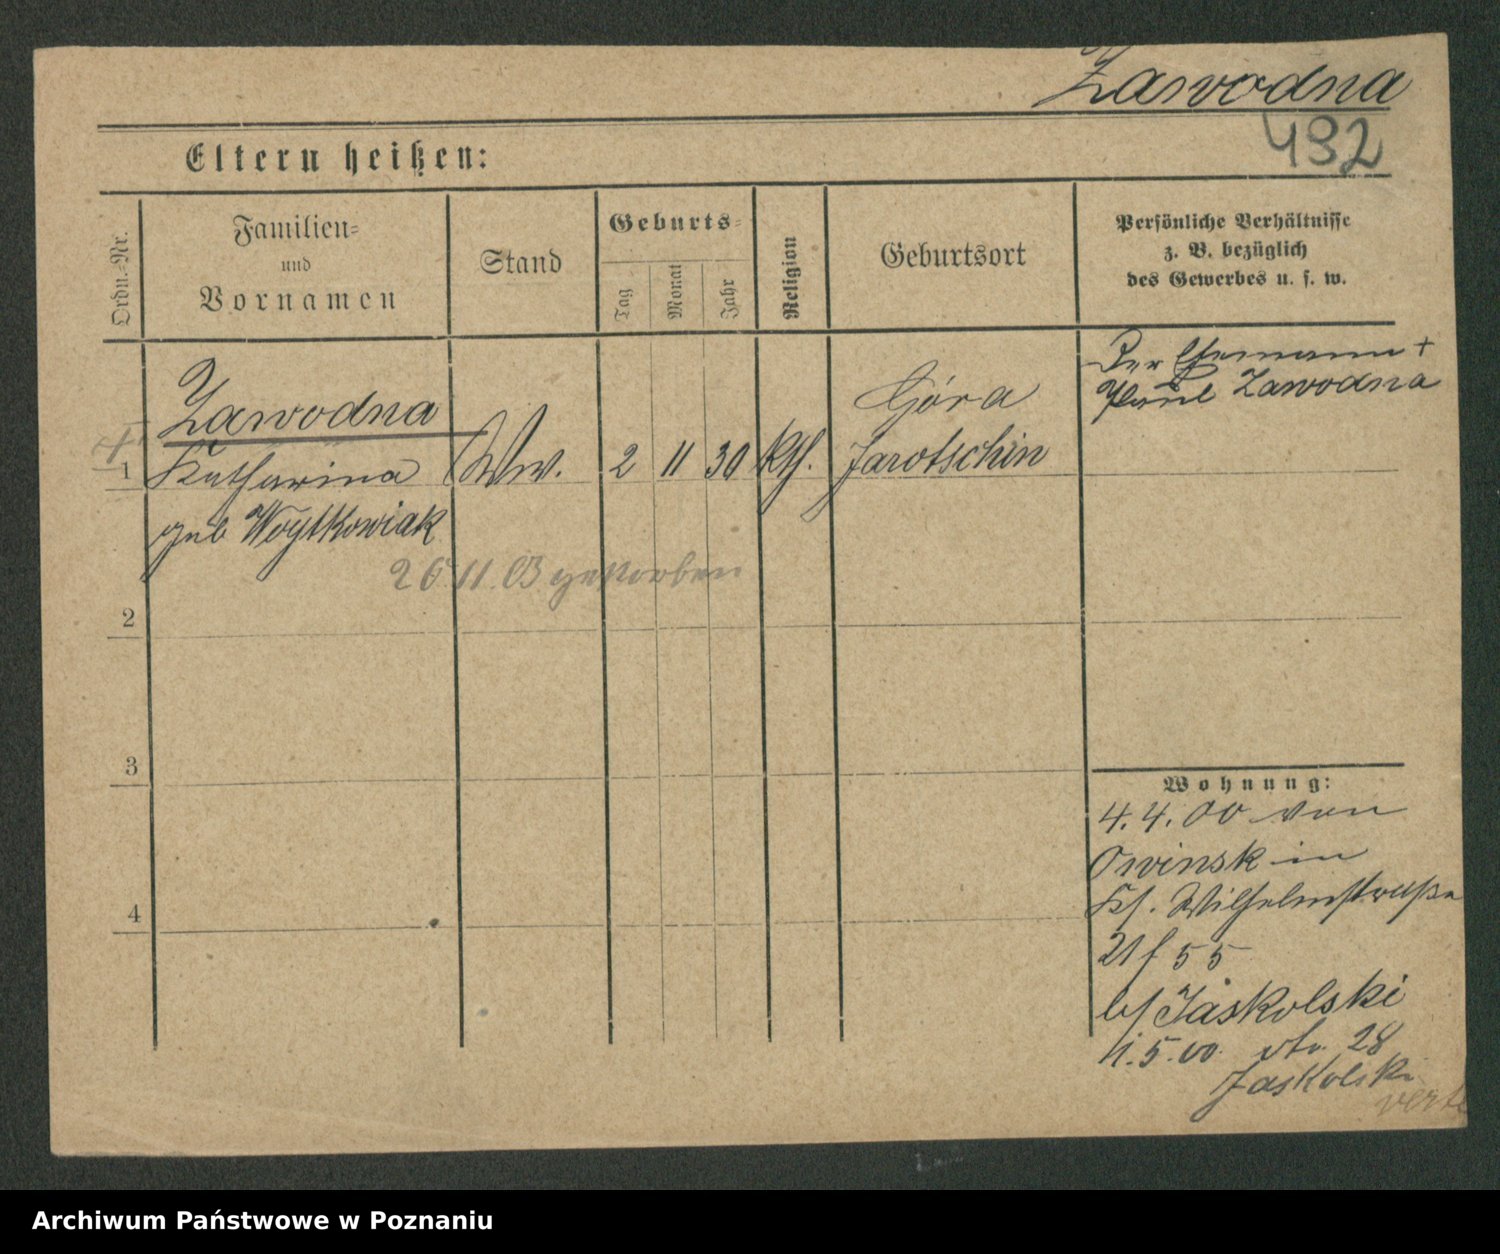 Zawodna
492
Eltern heißen:
Ordn.-Nr.
Familien-
und
Vornamen
Stand
Geburts-
Tag
Monat
Jahr
Religion
Geburtsort
Persönliche Verhältnisse
z. B. bezüglich
des Gewerbes u. s. w.
Der Ehemann +
Paul Zawodna
Zawodna
1 Katharina Ww. 2 11 30 Kth. Góra
Jarotschin
geb Woytkowiak
26.11.03 gestorben
2
3
4
Wohnung:
4.4.00 von
Owinsk in
Kl. Wilhelmstraße
21 f 55
b/ Jaskolski
4.5.00. dto. 28
Jaskolski
verte
Archiwum Państwowe w Poznaniu